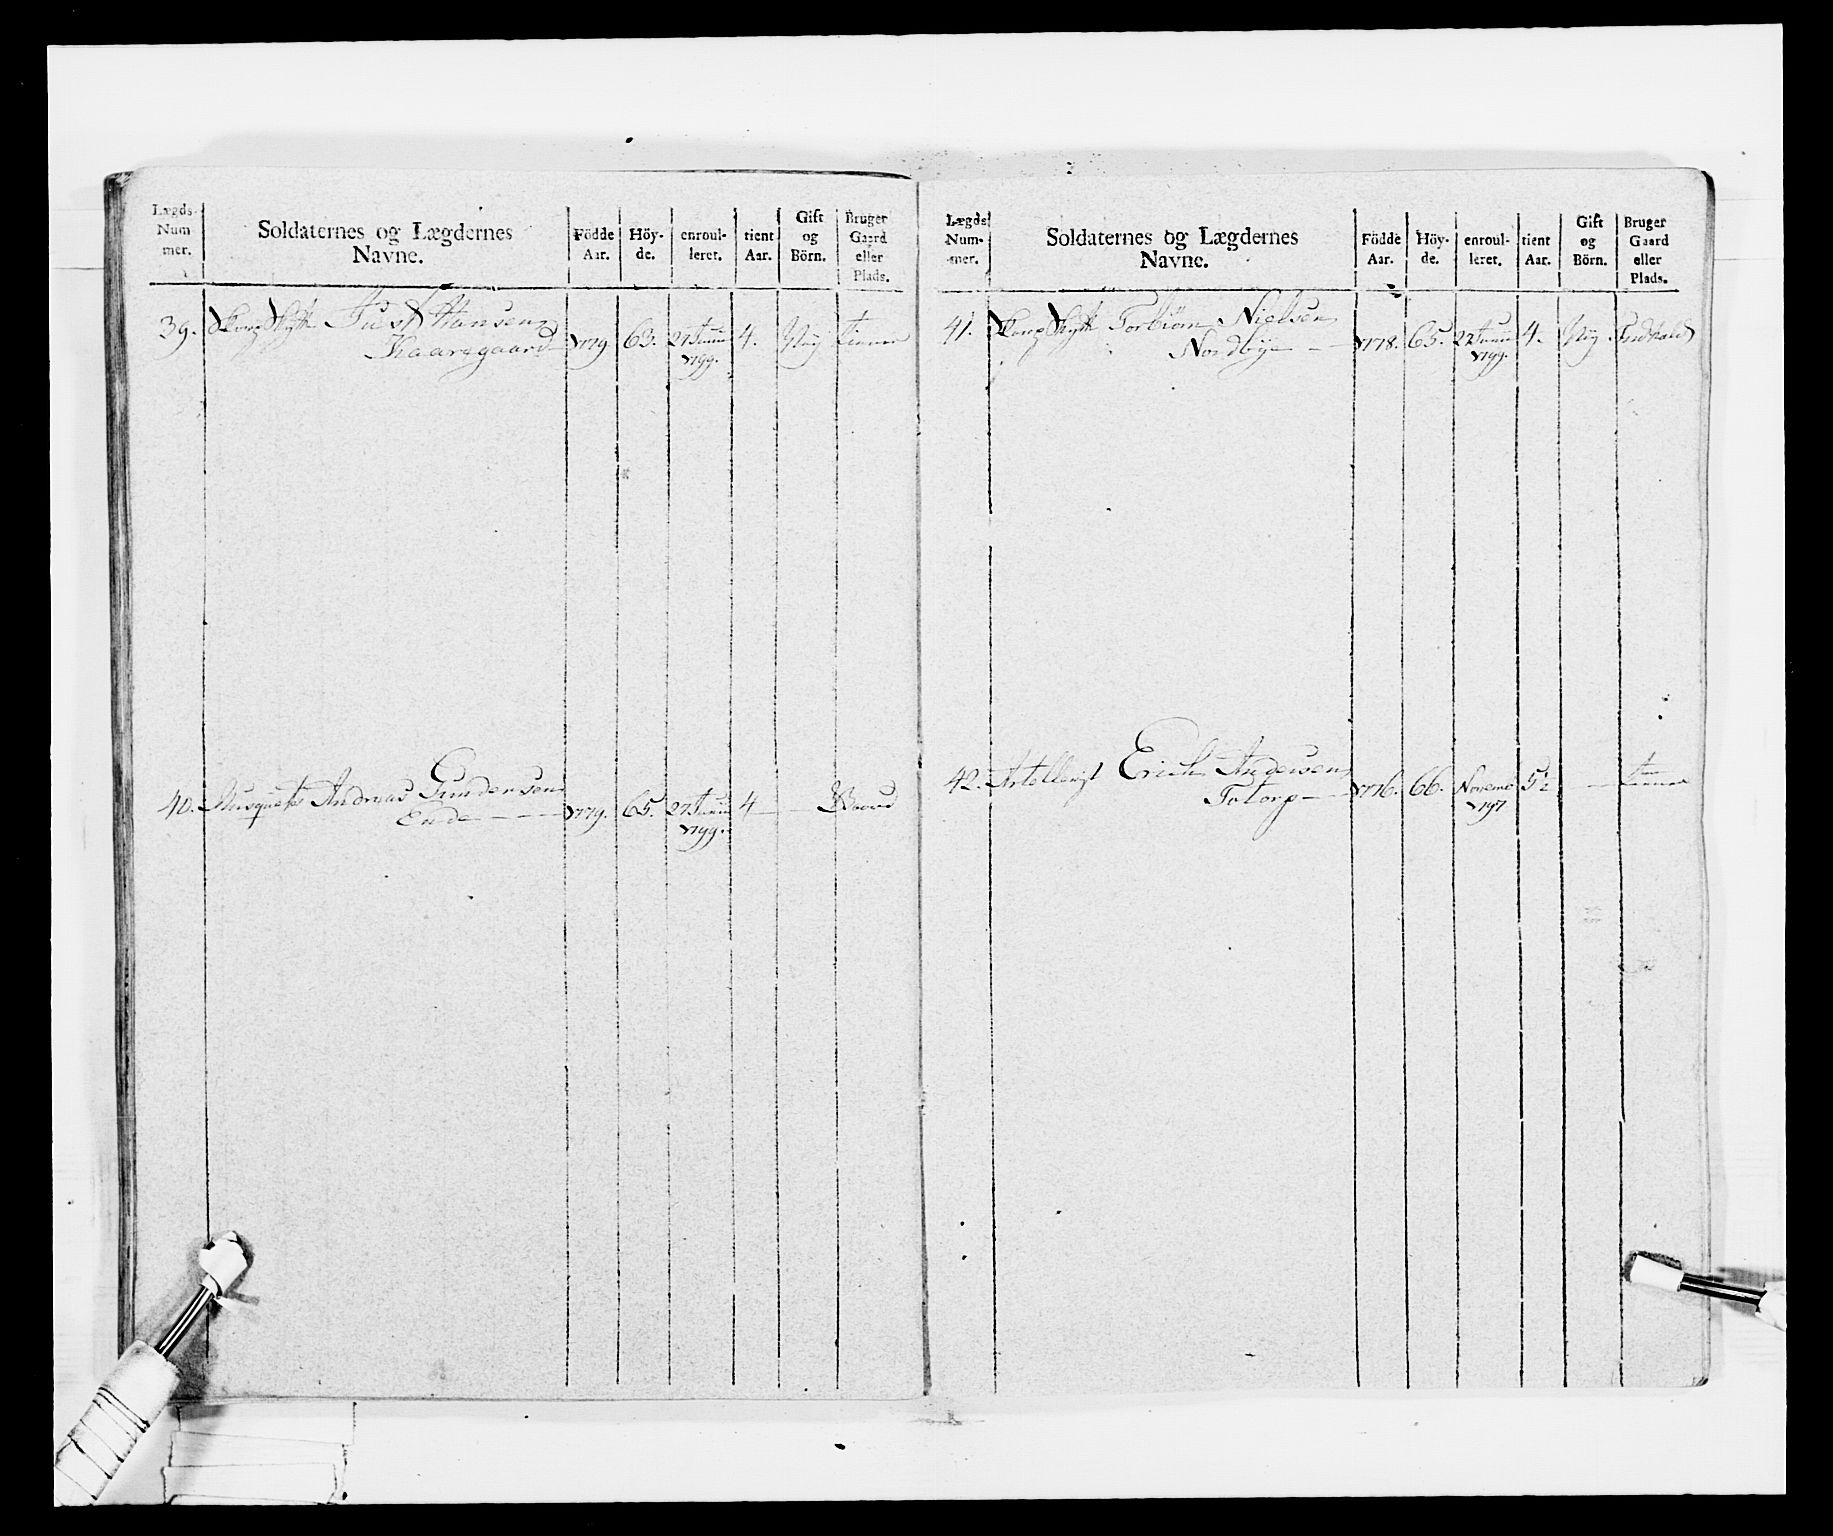 Lægds- Num- mer. | Soldaternes og Lægdernes Navne. | Födde Aar. | Höy- de. | enroul- leret. | tient Aar. | Gift og Börn. | Bruger Gaard eller Plads.
39. Skarp Skytt Just Hansen
Kaaregaard 1779 63. 27 Junii 4. Nøy Tienner
1799.
40. Musqueter Andreas Gundersen
Ende 1779. 65. 27 Junii 4
1799.
Lægds Num- mer. | Soldaternes og Lægdernes Navne. | Födde Aar. | Höy- de. | enroul- leret. | tient Aar. | Gift og Börn. | Bruger Gaard eller Plads.
41. Skarp Skytt Torbiørn Nielsen
Nordbye 1778. 65. 27 Junii 4. Nøy
1799.
42. Artollerist Erich Andersen
Totorp 1776. 66. Novemb 5½ Tienner
1797